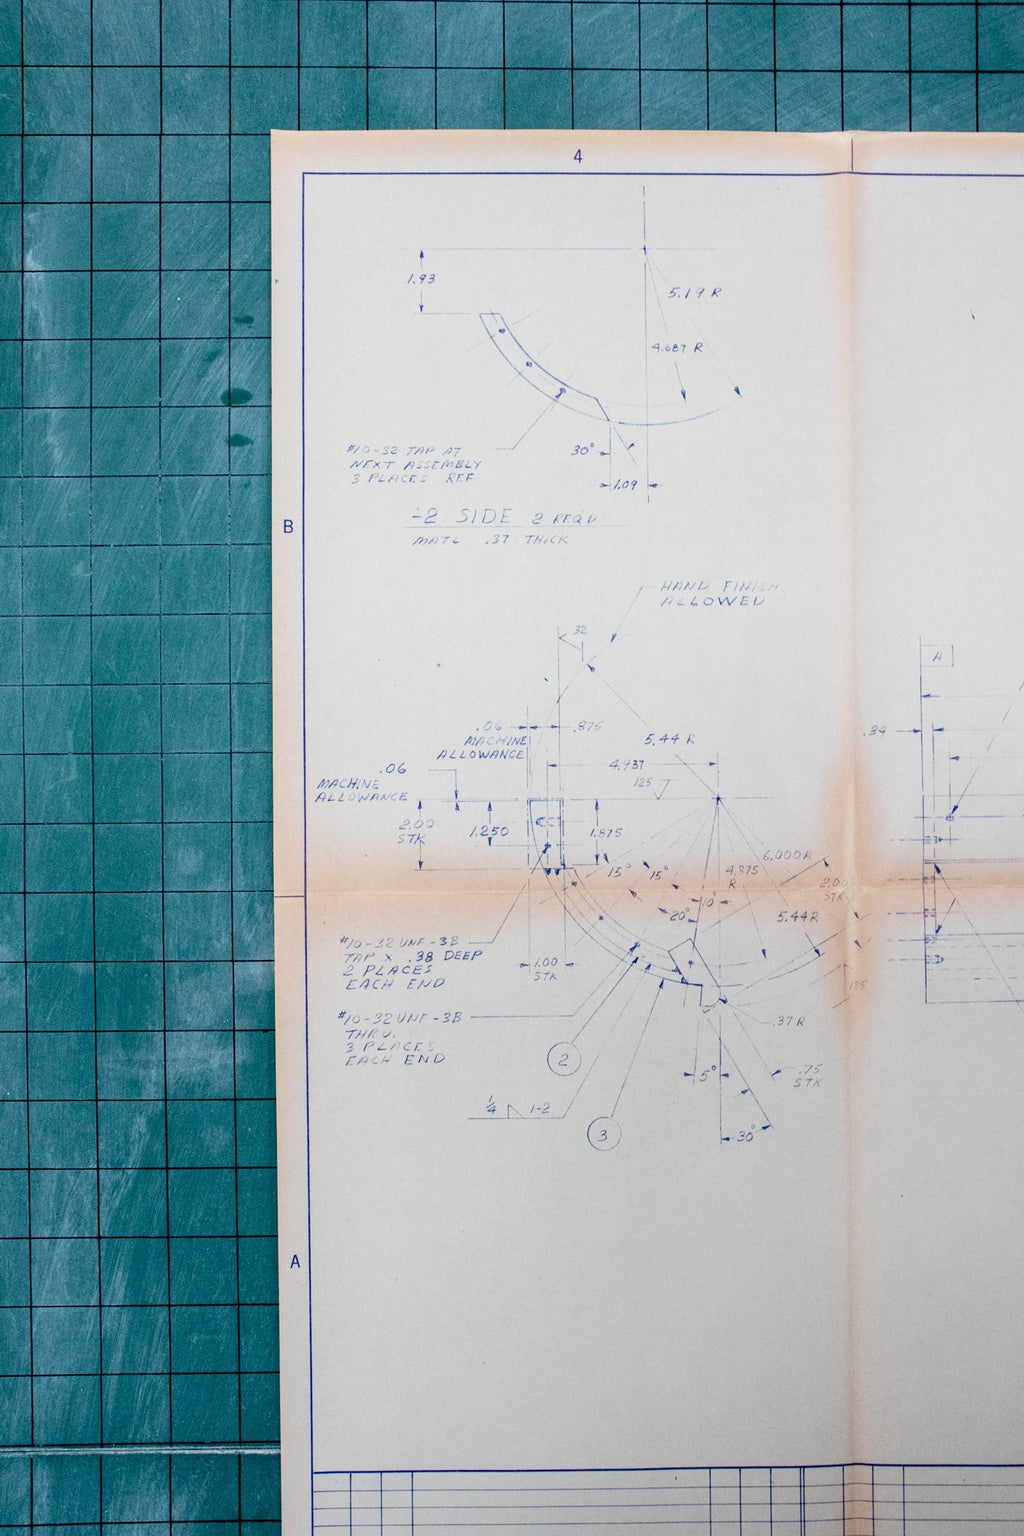 4
1.93
5.19 R
4.687 R
#10-32 TAP AT
NEXT ASSEMBLY
3 PLACES REF
30°
1.09
B
-2 SIDE 2 REQ'D
MATL .37 THICK
HAND FINISH
ALLOWED
32
A
.06
.875
MACHINE
ALLOWANCE
5.44 R
4.937
125
.06
MACHINE
ALLOWANCE
2.00
STK
1.250
1.875
15°
15°
6.000R
4.375
R
2.00
STK
10°
20°
5.44R
#10-32 UNF-3B
TAP X .38 DEEP
2 PLACES
EACH END
1.00
STK
125
#10-32 UNF-3B
THRU.
3 PLACES
EACH END
.37 R
2
5°
.75
STK
1/4 1-2
3
30°
A